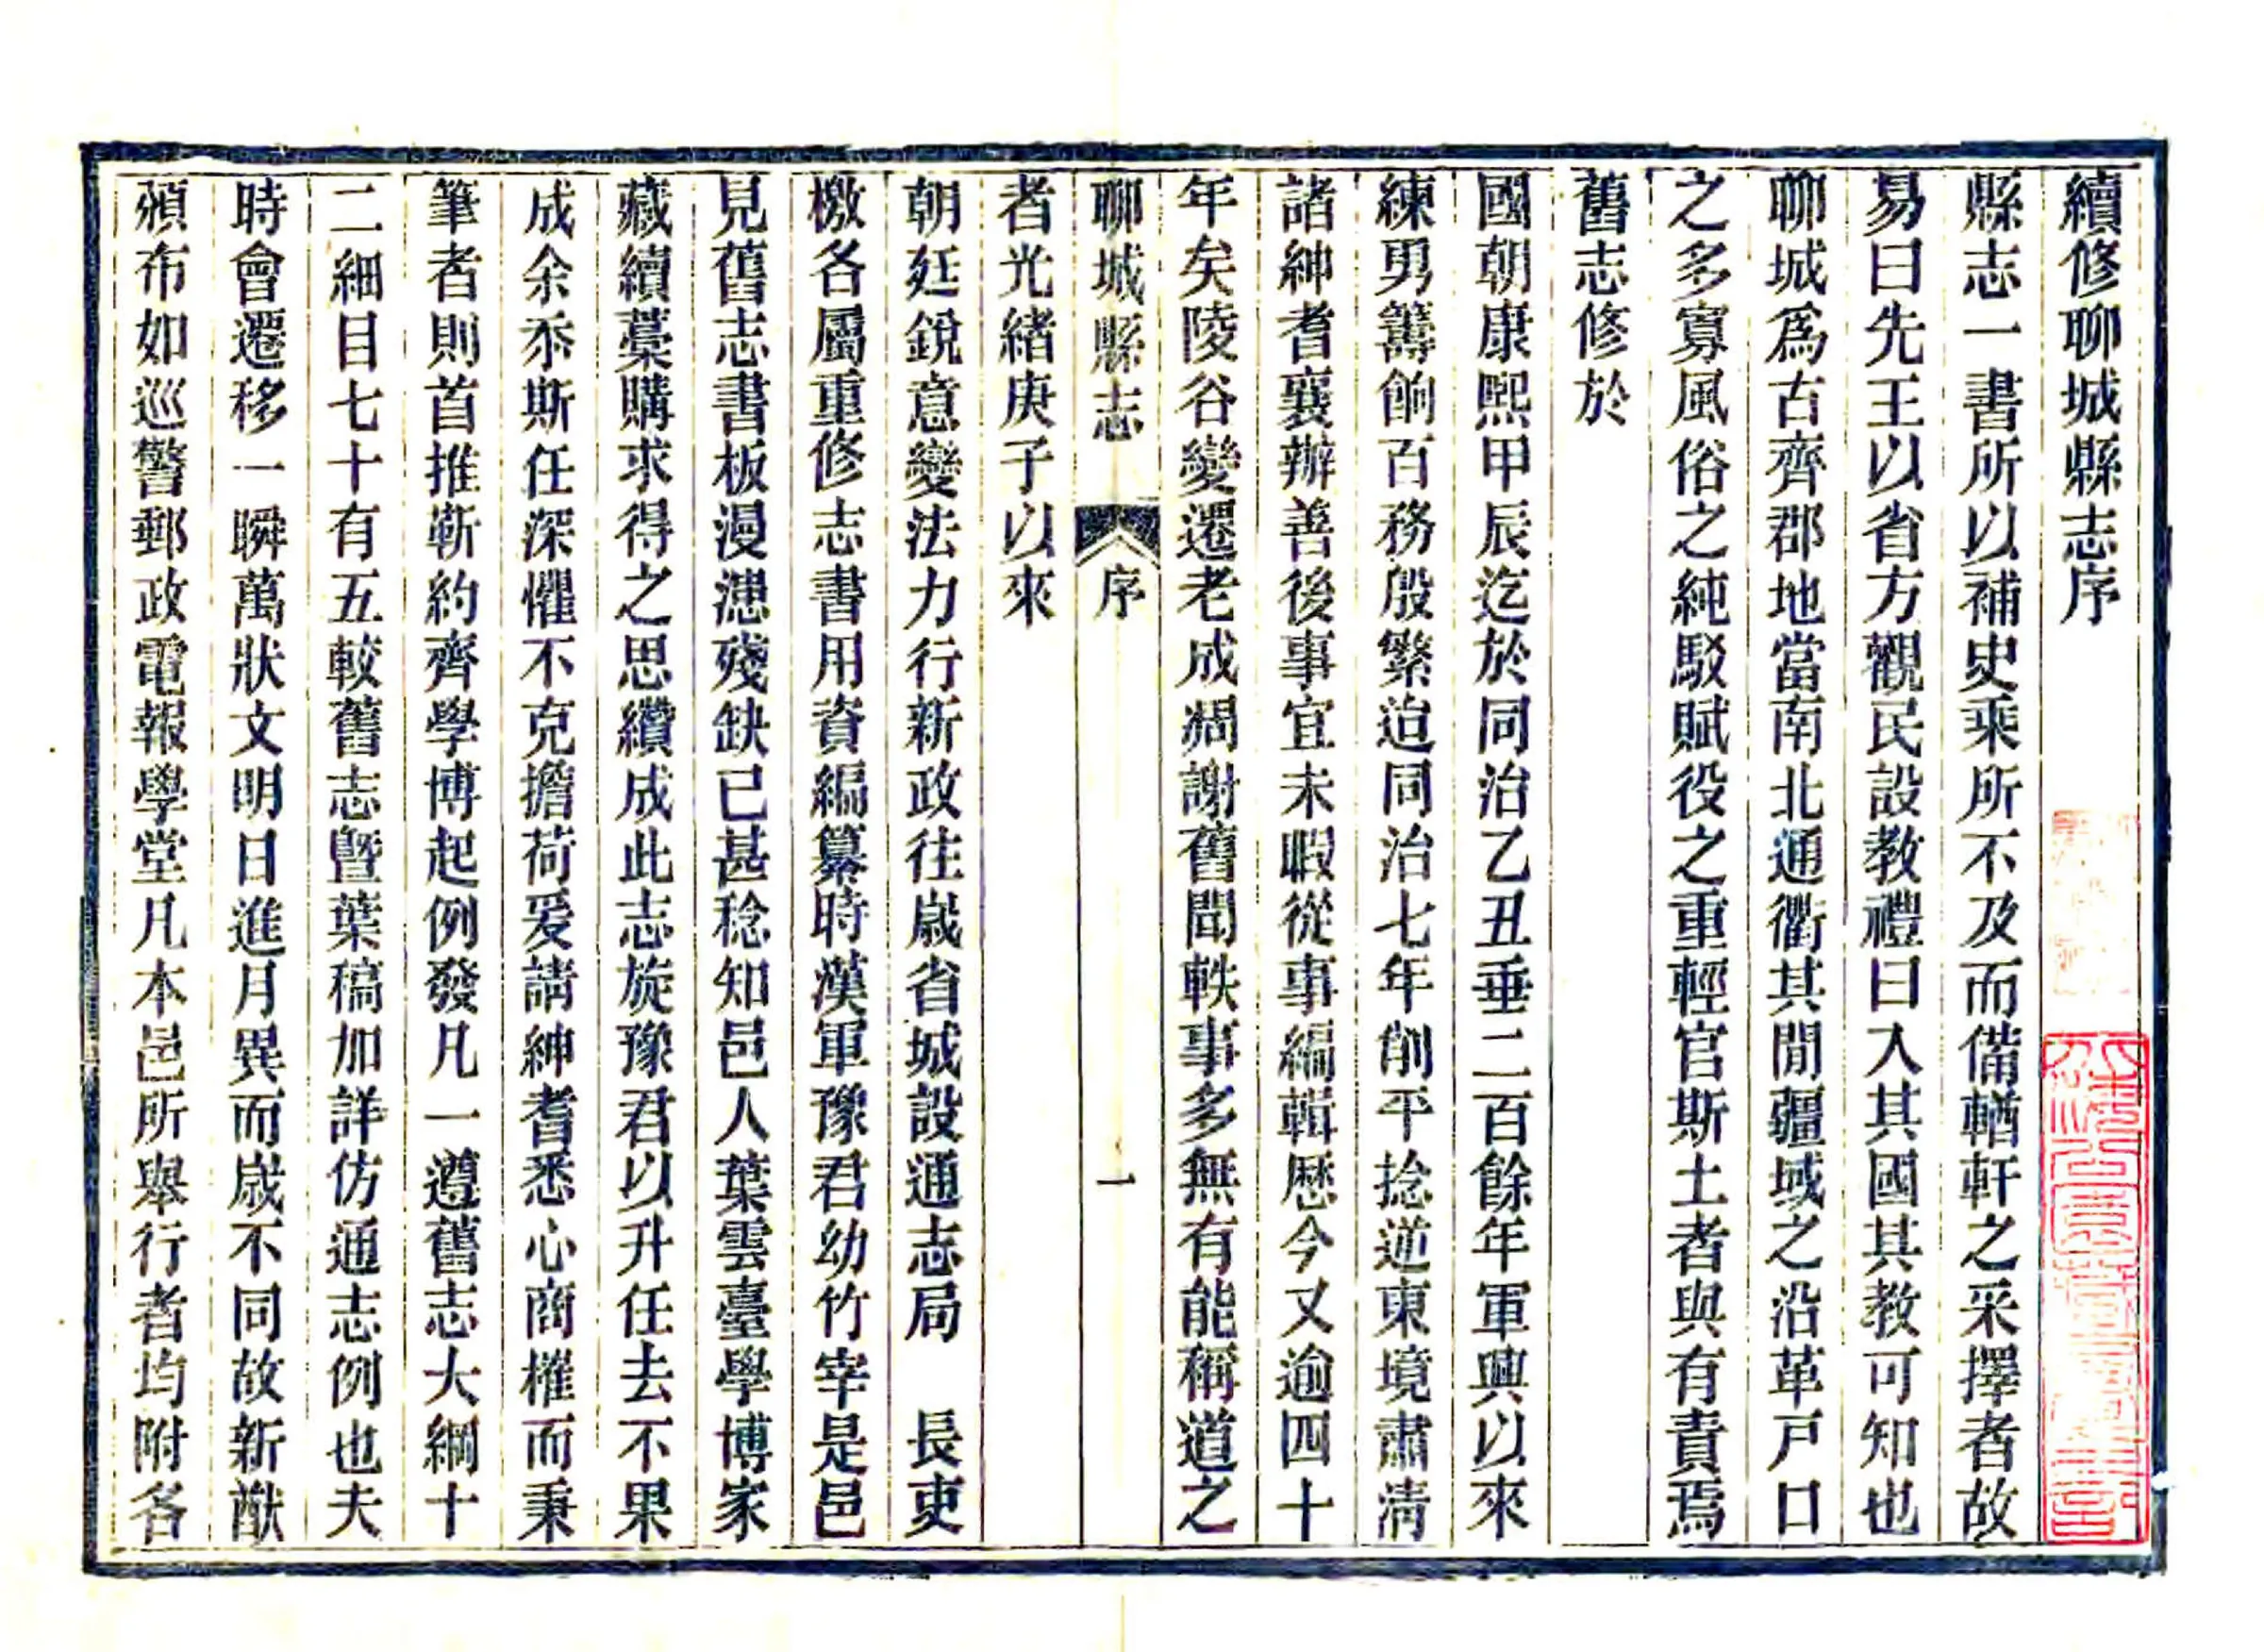 續修聊城縣志序
縣志一書所以補史乘所不及而備輶軒之采擇者故
易曰先王以省方觀民設教禮曰入其國其教可知也
聊城爲古齊郡地當南北通衢其閒疆域之沿革戸口
之多寡風俗之純駁賦役之重輕官斯土者與有責焉
舊志修於
國朝康熙甲辰迄於同治乙丑垂二百餘年軍興以來
練勇籌餉百務殷繁迨同治七年削平捻逆東境肅清
諸紳耆襄辦善後事宜未暇從事編輯歷今又逾四十
年矣陵谷變遷老成凋謝舊聞軼事多無有能稱道之
聊城縣志 序 一
者光緒庚子以來
朝廷銳意變法力行新政往歲省城設通志局 長吏
檄各屬重修志書用資編纂時漢軍豫君幼竹宰是邑
見舊志書板漫漶殘缺已甚稔知邑人葉雲臺學博家
藏續藁購求得之思纘成此志旋豫君以升任去不果
成余忝斯任深懼不克擔荷爰請紳耆悉心商榷而秉
筆者則首推靳約齊學博起例發凡一遵舊志大綱十
二細目七十有五較舊志曁葉稿加詳仿通志例也夫
時會遷移一瞬萬狀文明日進月異而歲不同故新猷
頒布如巡警郵政電報學堂凡本邑所舉行者均附各